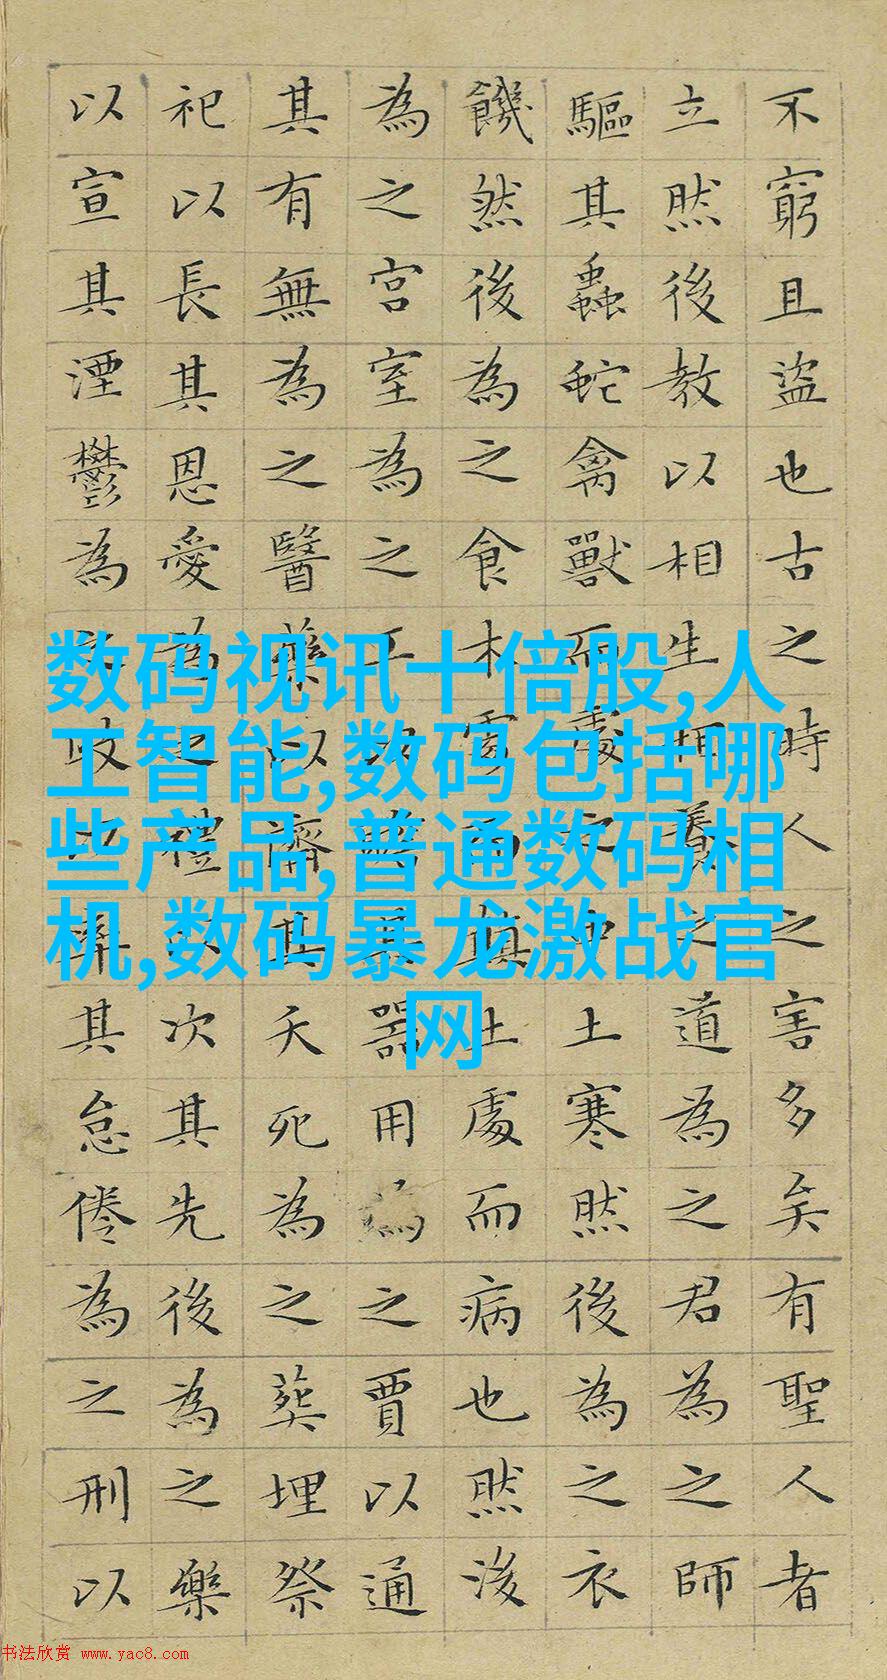 不窮且盜也古之時人之害多矣有聖人者
立然後教以相生相養之道為之君為之師
驅其蟲蛇禽獸而處之中土寒然後為之衣
饑然後為之食木處而顛土處而病也然後
為之宮室為之工以贍其器用為之賈以通
其有無為之醫藥以濟其夭死為之葬埋祭
祀以長其恩愛為之禮以次其先後為之樂
以宣其湮鬱為之政以率其怠倦為之刑以
数码视讯十倍股,人
工智能,数码包括哪
些产品,普通数码相
机,数码暴龙激战官
网
书法欣赏 www.yac8.com